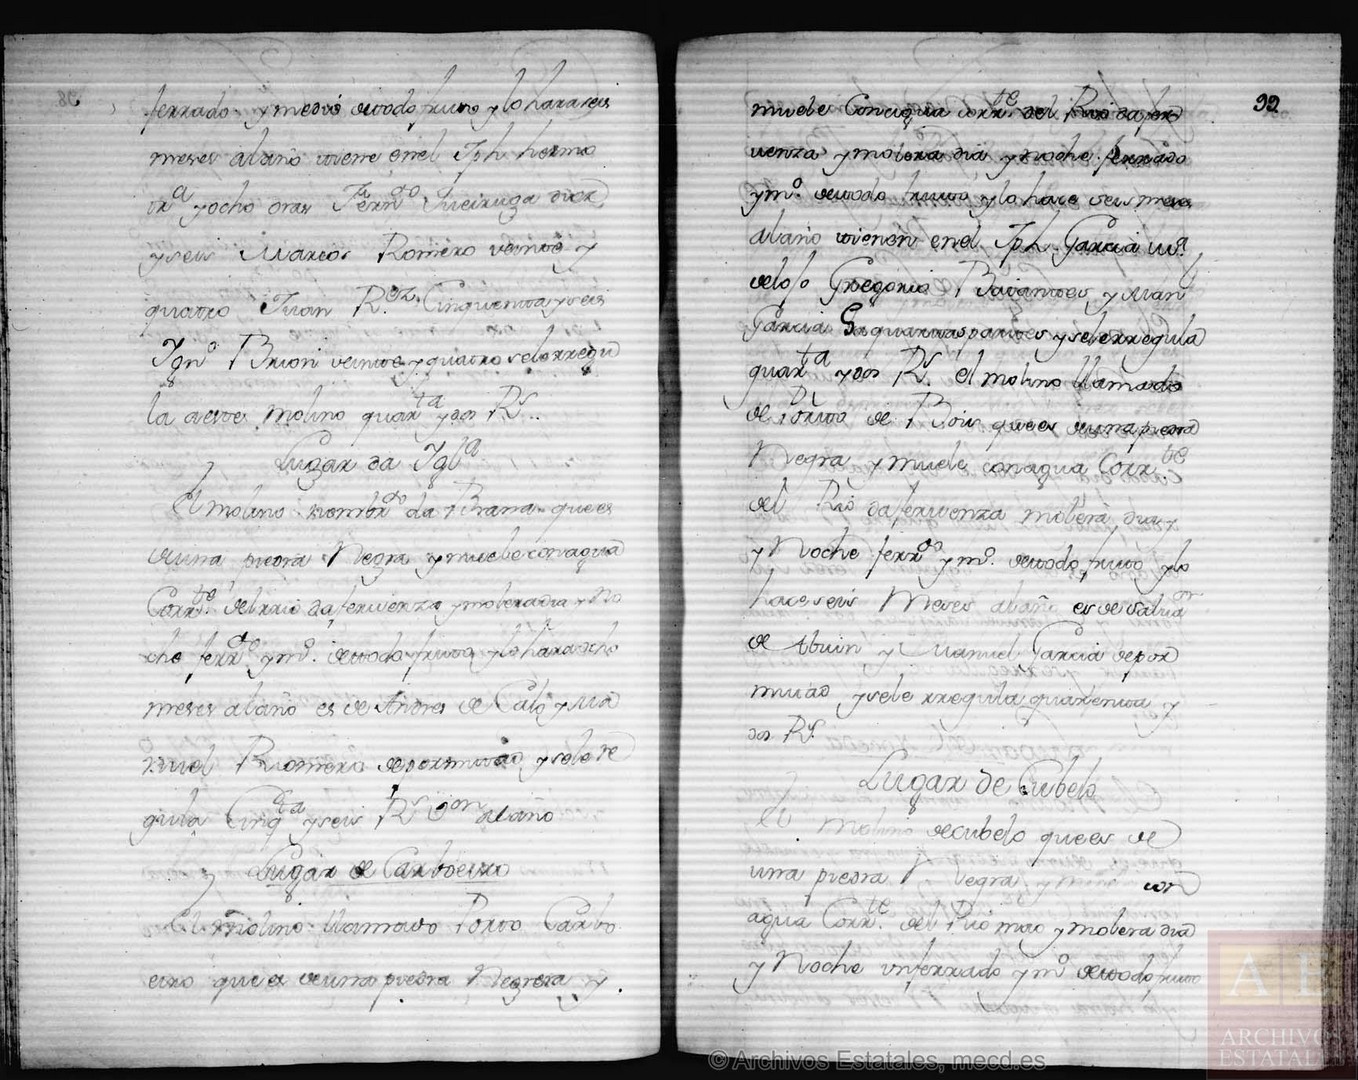 ferrado y medio de todo fruto y lo hara seis
meses al año tiene en el Jph hermo
y ocho oras Fern.do Fueiruga diez
y seis Marcos Romero veinte y
quatro Juan R.ez Cinquenta y seis
Ign.o Brion veinte y quatro sele rregu
la a este molino quar.ta y dos R.s
Lugar da Igl.a
El molino nombr.do da Brana que es
de una piedra Negra y muele con agua
Corr.te del rrio da fervenza y molera dia y No
che ferr.do y m.o de todo fruto y lo hara ocho
meses al año es de Andres de Calo y Ma
nuel Romero de por mitad y sele re
gula Cinq.ta y seis R.s v.on al año
Lugar de Carboeiro
El molino llamado Porto Carbo
eiro que es de una piedra Negrera y
99
muele Con agua corr.te del Rio da fer
venza y molera dia y noche ferrado
y m.o de todo fruto y lo hace seis meses
al año tienen en el Jph Garcia
Gregorio Barantes y Juan
Garcia quartas partes y sele rregula
quar.ta y dos R.s el molino llamado
de Porto de Bois que es de una piedra
Negra y muele con agua Corr.te
del Rio da fervenza molera dia
y Noche ferr.do y m.o de todo fruto y lo
hace seis Meses al año es de Salva.or
de Abuin y Manuel Garcia de por
mitad y sele rregula quarenta y
dos R.s
Lugar de Cubelo
El Molino de cubelo que es de
una piedra Negra y muele con
agua Corr.te del Rio mao y molera dia
y Noche un ferrado y m.o de todo fruto
© Archivos Estatales, mecd.es
AE
ARCHIVOS
ESTATALES